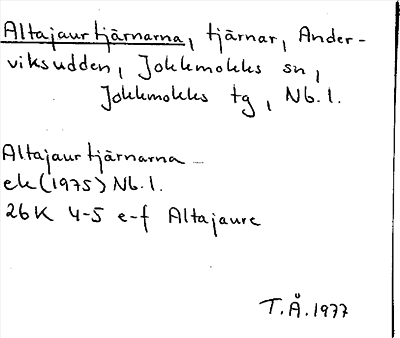 Altajaurtjärnarna, tjärnar, Ander-
viksudden, Jokkmokks sn,
Jokkmokks tg, Nb. l.
Altajaurtjärnarna –
ek (1975) Nb. l.
26K 4-5 e-f Altajaure
T.Å. 1977